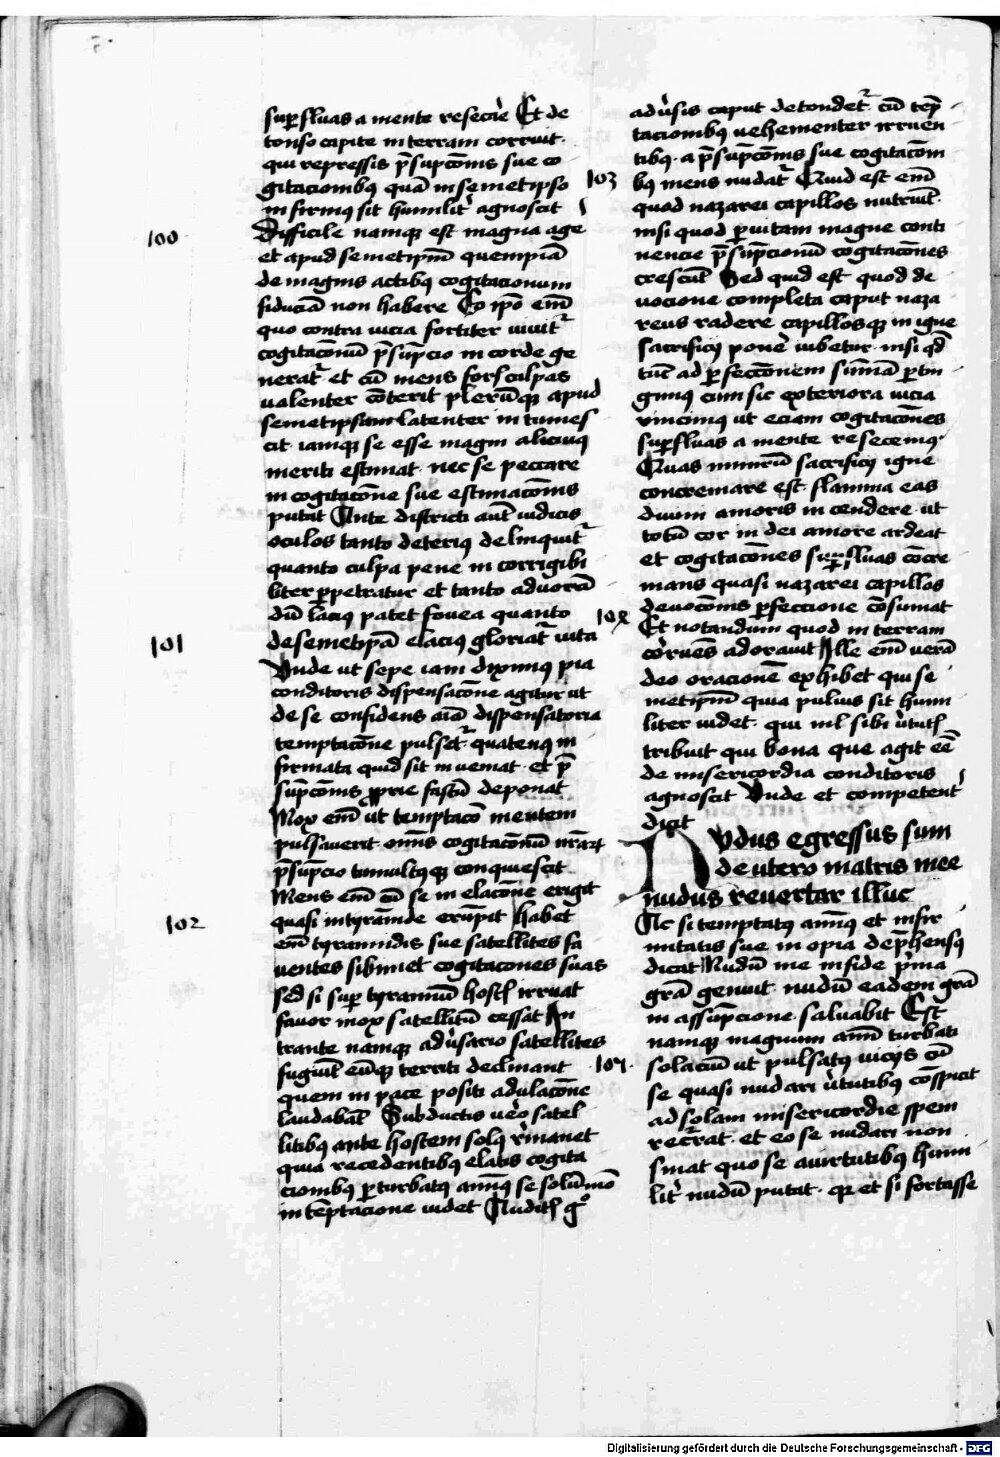 sup̱fluas a mente reseciẽ Et de
tonso capite in terram corruit·
qui repressis p̄supcōnis sue co
gitacionibꝰ quā in semetipso
infirmꝰ sit humilit̉ agnoscit
100
Difficile namqꝫ est magna age
et apud semetip̄m quempiā
de magnis actibꝰ cogitacionum
fiduciā non habere Eo ip̄o em̄
quo contra vicia fortiter viuit̉
cogitacōnū p̄sūpcio in corde ge
nerat̉ et cū mens fors culpas
valenter cōterit plerūqꝫ apud
semetipsam latenter in tumes
cit iamqꝫ se esse magni alicuiꝰ
meriti estimat nec se peccare
in cogitacōne sue estimacōnis
putat Ante districti aūt iudicis
oculos tanto deteriꝰ delinquit̉
quanto culpa pene in corrigibi
liter ꝑpetratur et tanto ad vorān
dū laciꝰ patet fouea quanto
101
de semetip̄a elaciꝰ gloriat̉ vita
Vnde ut sepe iam diximꝰ pia
conditoris dispensacōne agitur ut
de se confidens aīa dispensatoria
temptacōne pulset̉ quatenꝰ in
firmata quid sit inueniat et p̄
sūpcōnis ꝓprie fastū deponat
Mox em̄ ut temptacō mentem
pulsauerit om̄is cogitacōnū nr̄aꝝ
p̄sūpcio tumultꝰqꝫ conquiescit
Mens em̄ cū se in elacōne erigit
102
quasi in tyrannide erūpit habet
em̄ tyrannidis sue satellites fa
uentes sibimet cogitacones suas
Sed si sup̱ tyrannū hostꝭ irruat
fauor mox satellitū cessat In
trante namqꝫ adu̓sario satellites
fugiūt eūqꝫ territi declinant
quem in pace positi adulacōne
laudabāt Subductis veo satel
litibꝰ ante hostem solꝰ r̓manet
quia recedentibꝰ elatis cogita
cionibꝰ ꝑturbatꝰ animꝰ se solūmō
in teptacione videt Auditꝭ g̊
adu̓sis caput detondet̉ cū tep̄
tacionibꝰ vehementer irruen
tibꝰ a p̄sūpcōnis sue cogitacōni
103
bꝰ mens nudat̉ Quid est em̄
quod nazarei capillos nutriūt
nisi quod ꝑ vitam magne conti
nencie p̄sūpcionū cogitacōnes
crescūt Sed quid est quod de
uocione completa caput naza
reus radere capillosqꝫ in igne
sacrificij ponē iubetur nisi qd̄
tūc ad ꝑfeccōnem sūmā ꝑtin
gimꝰ cum sic exteriora vicia
vincimꝰ ut eciam cogitacōnes
sup̱fluas a mente resecemꝰ
Quas nimirū sacrificij igne
concremare est flamma eas
diuini amoris in cendere ut
totū cor in dei amore ardeat
et cogitacōnes sup̱fluas cōcre
mans quasi nazarei capillos
deuocōnis ꝑfeccione cōsumat
104
Et notandum quod in terram
corruēs adorauit Ille em̄ verā
deo oracionē exhibet qui se
metip̄m quia puluis sit humi
liter videt qui nil sibi v̓tutꝭ
tribuit qui bona que agit eē
de misericordia conditoris
agnoscit Vnde et competent̉
dicit
Nvdus egressus sum
de utero matris mee
nudus reuertar illuc
Ac si temptatꝰ animꝰ et infir
mitatis sue in opia dep̄hensꝰ
dicat Nudū me in fide p̓ma
grā genuit nudū eadem grā
in assūpcione saluabit Est
namqꝫ magnum animi turbati
105
solaciū ut pulsatꝰ vicijs cū
se quasi nudari v̓tutibꝰ cōspicit
ad solam misericordie spem
recurat et eo se nudari non
sinat quo se a virtutibꝰ humi
lit̉ nudū putat qꝫ et si fortasse
Digitalisierung gefördert durch die Deutsche Forschungsgemeinschaft - DFG